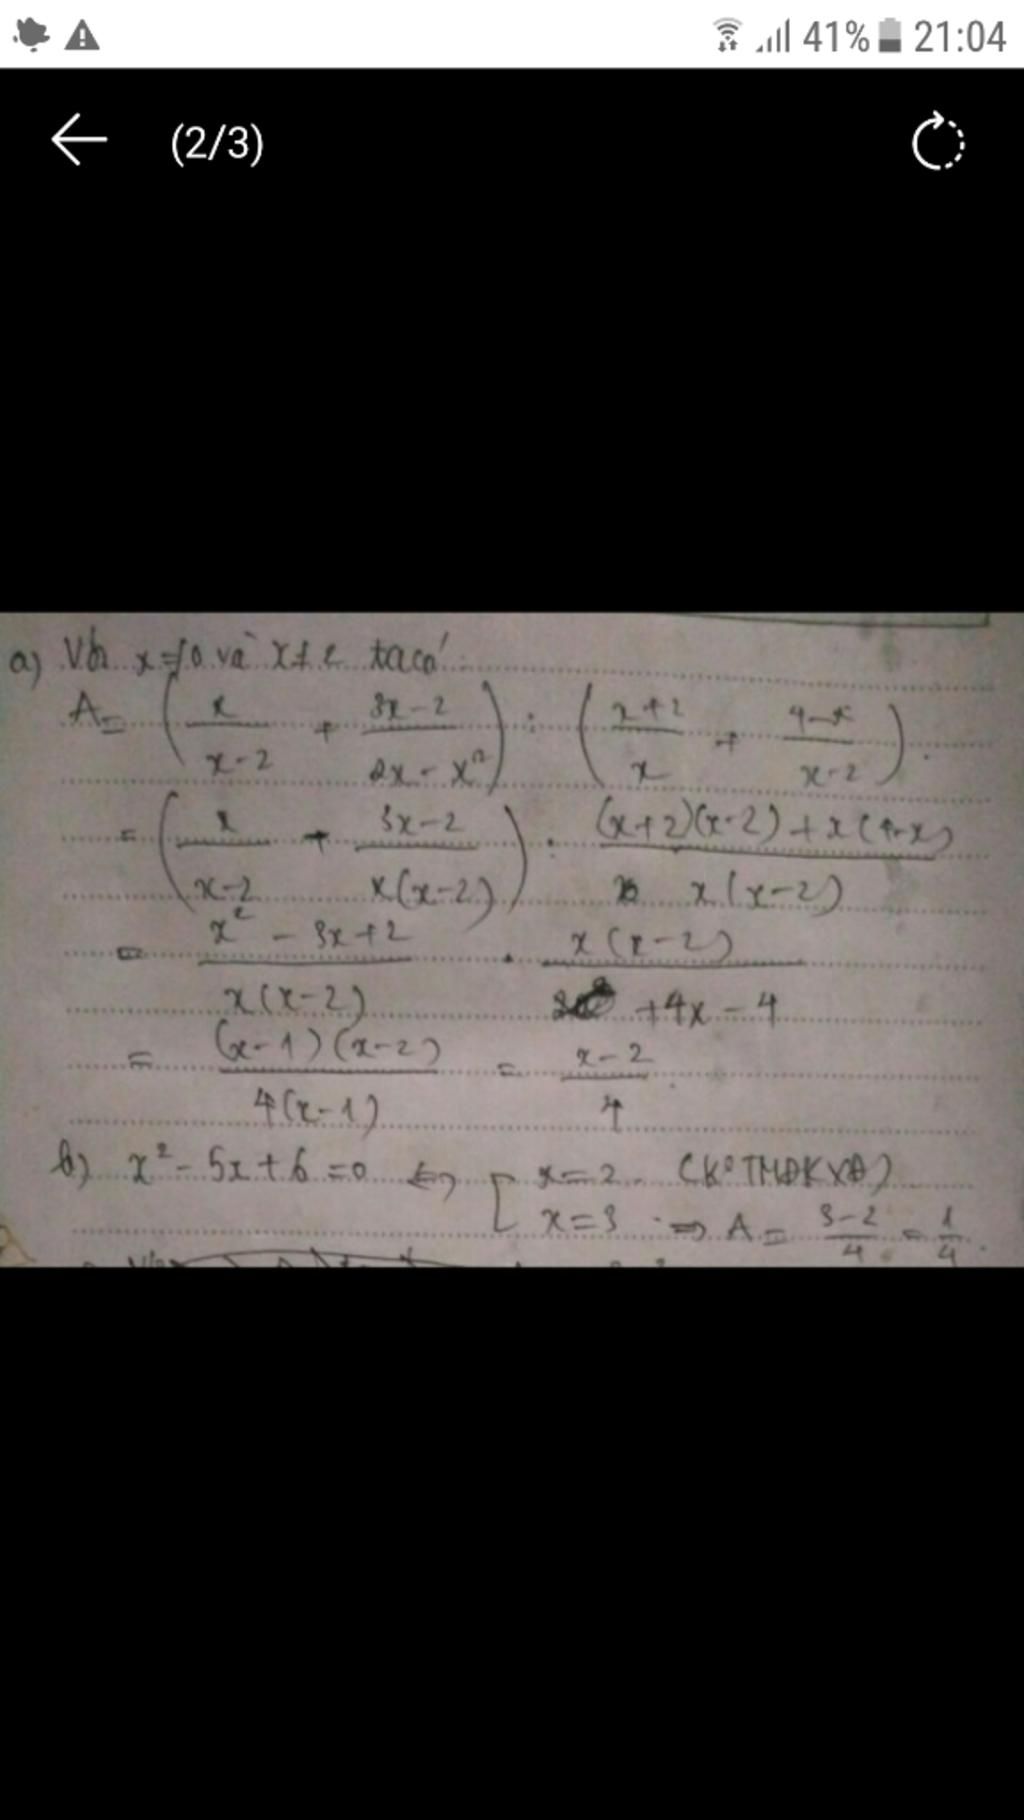 41% 21:04
(2/3)
a) Với x≠0 và x≠2 ta có:
A = (x/(x-2) + (3x-2)/(2x-x²)) : ((x+2)/x + (4-x)/(x-2)).
= (x/(x-2) + (3x-2)/(x(x-2))) : ((x+2)(x-2)+x(4-x))/(x(x-2))
= (x²-3x+2)/(x(x-2)) . (x(x-2))/(+4x-4)
= ((x-1)(x-2))/(4(x-1)) = (x-2)/4.
b) x²-5x+6=0 ⇔ [ x=2 (K° TMĐKXĐ)
x=3 ⇒ A = (3-2)/4 = 1/4.